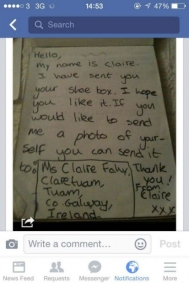 3 3G
14:53
47%
Search
Hello,
my name is Claire.
I have sent you
your shoe box. I hope
you like it. If you
would like to send
me a photo of your-
self you can send it
to: Ms Claire Fahy,
Claretuam,
Tuam,
Co Galway,
Ireland.
Thank
you!
From
Claire
xxx
Write a comment...
Post
News Feed
Requests
Messenger
Notifications
More